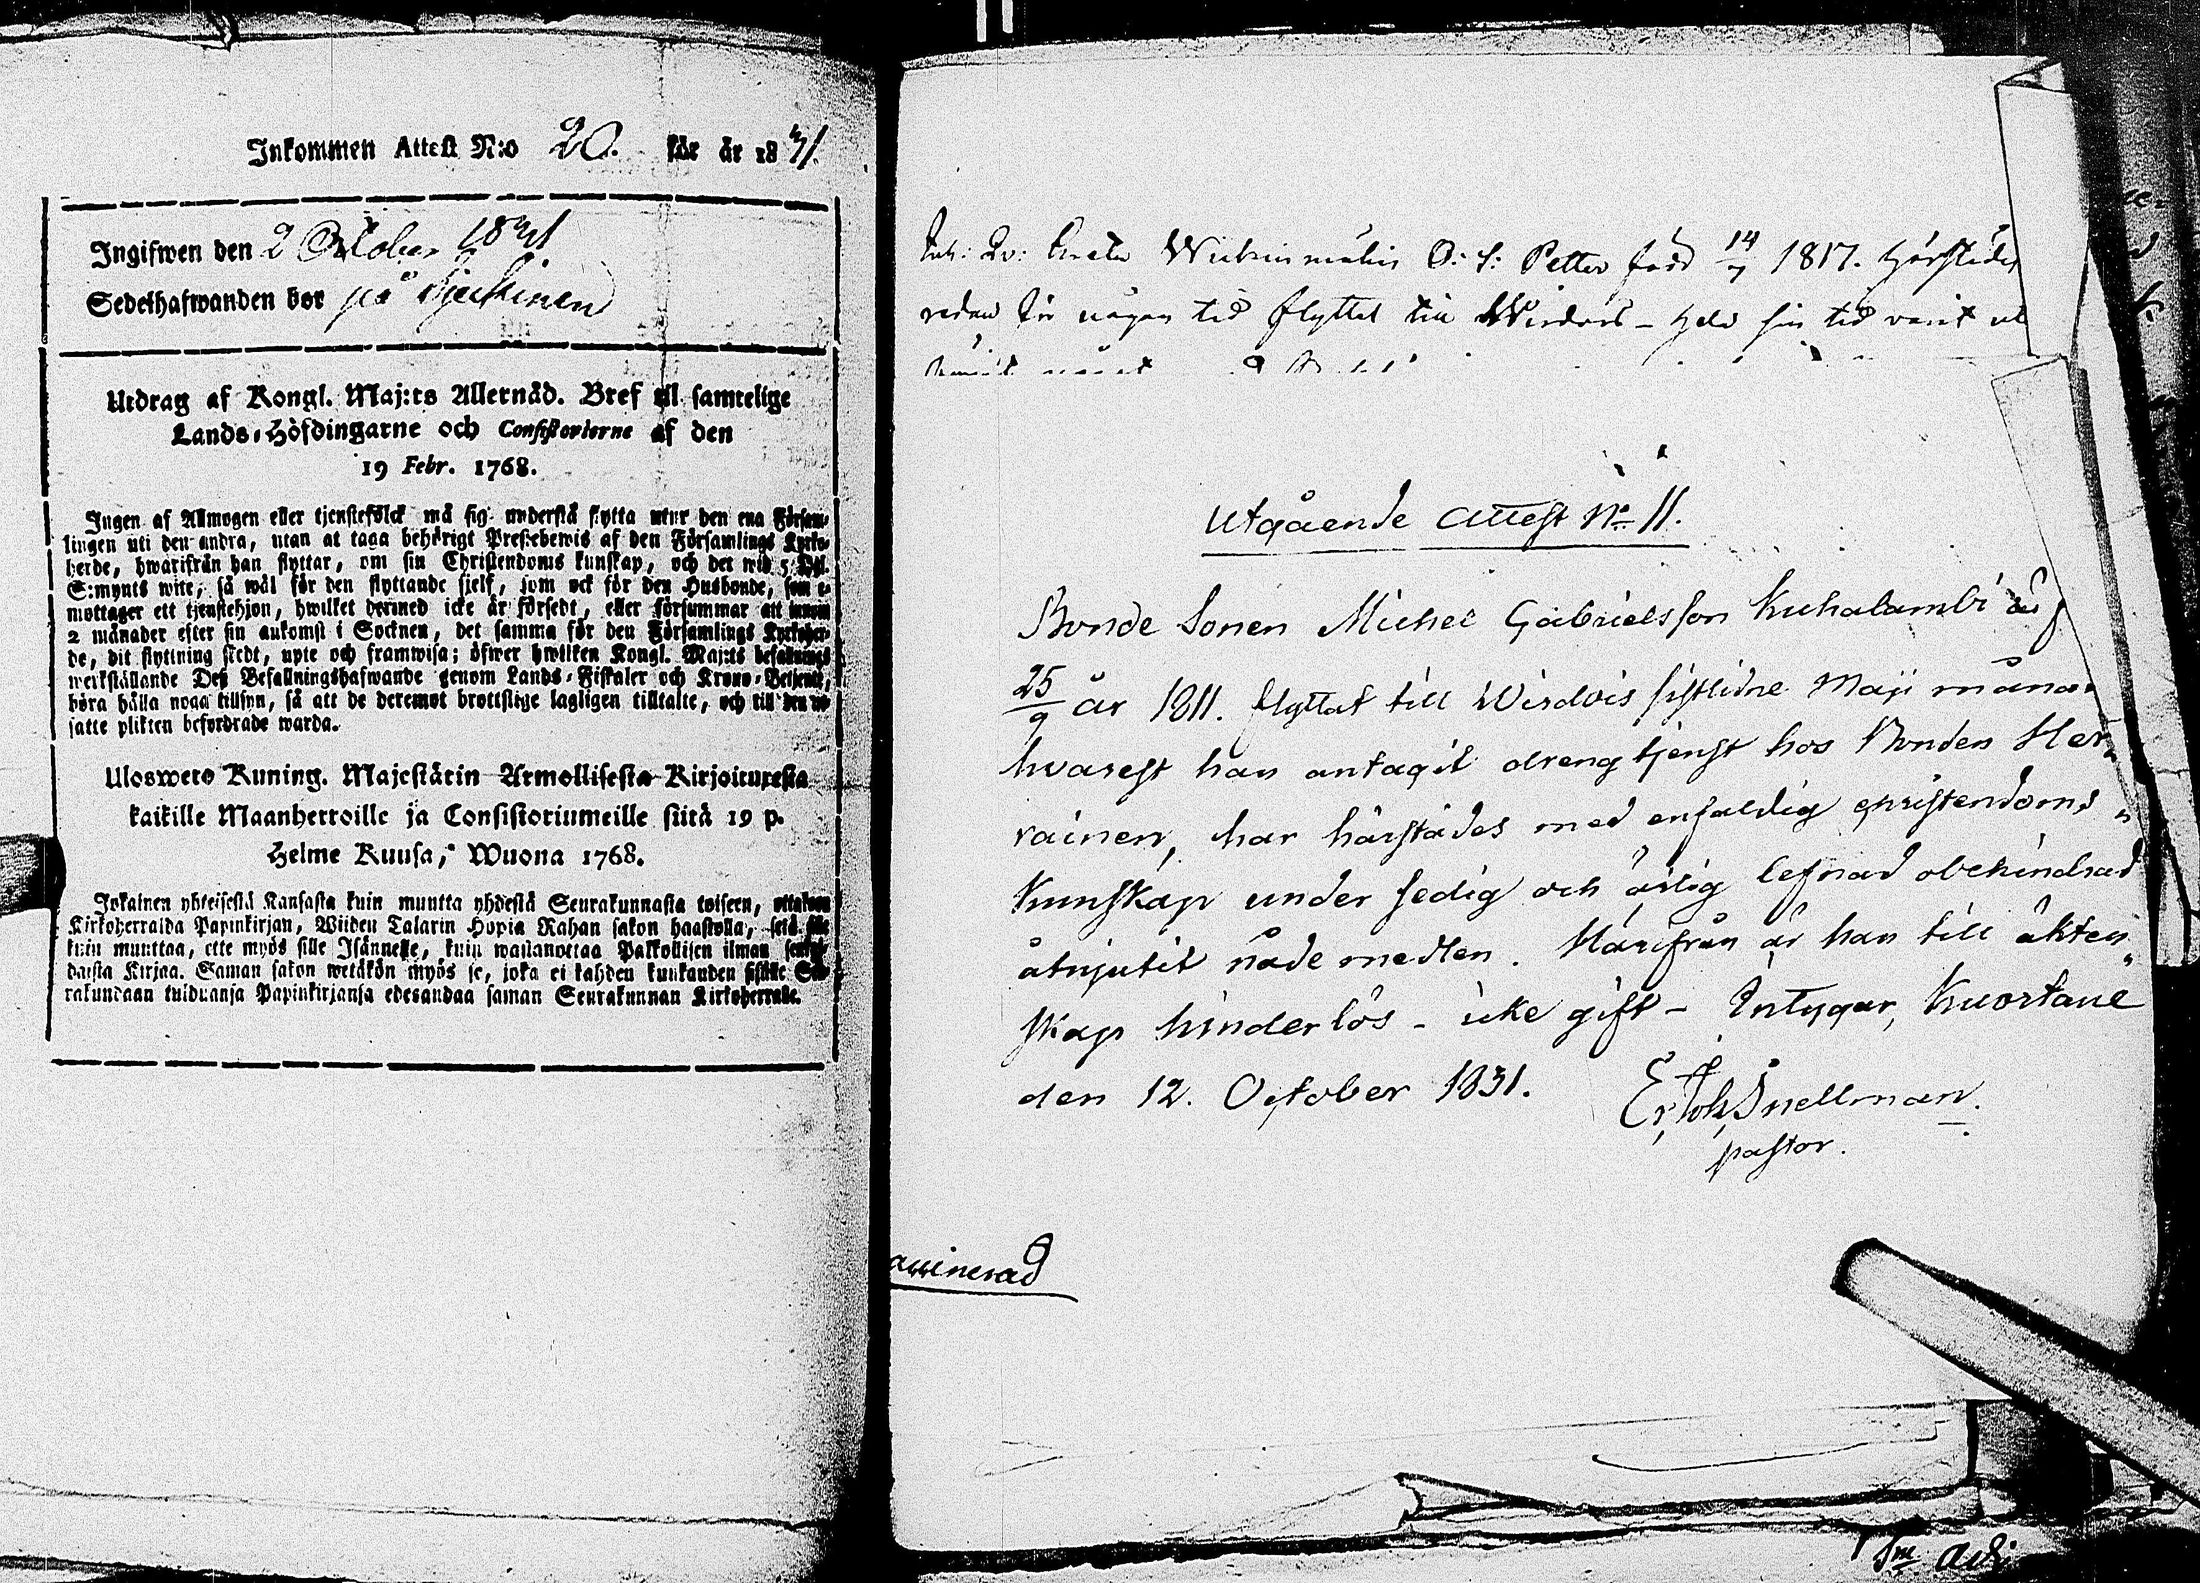 Inkommen Attest N:o 20. för år 1831.
Ingifwen den 2 October 1831
Sedelhafwanden bor på
Utdrag af Kongl. Maj:ts Allernåd. Bref til samtelige
Lands-Höfdingarne och Consistorierne af den
19 Febr. 1768.
Ingen af Allmogen eller tjenstefolck må sig understå flytta utur den ena Försam-
lingen uti den andra, utan at taga behörigt Prestebewis af den Församlings Kyrko-
herde, hwarifrån han flyttar, om sin Christendoms kunskap, och det wid 5 Dal.
S:mynts wite, så wäl för den flyttande sjelf, som ock för den Husbonde, som e-
mottager ett tjenstehjon, hwilket dermed icke är försedt, eller försummar att innom
2 månader efter sin ankomst i Socknen, det samma för den Församlings Kyrkoher-
de, dit flyttning skedt, upte och framwisa; öfwer hwilken Kongl. Maj:ts befallnings
werkställande Deß Befallningshafwande genom Lands-Fiskaler och Krono-Betjente,
böra hålla noga tillsyn, så att de deremot brottslige lagligen tilltalte, och till den ut-
satte plikten befordrade warda.
Ulosweto Kuning. Majestätin Armollisesta Kirjoituxesta
kaikille Maanherroille ja Consistoriumeille siitä 19 p.
Helme Kuusa, Wuona 1768.
Jokainen yhteisestä Kansasta kuin muutta yhdestä Seurakunnasta toiseen, ottakoon
Kirkoherralda Papinkirjan, Wiiden Talarin Hopia Rahan sakon haastolla, sekä sille
kuin muuttaa, ette myös sille Isännelle, kuin wastanottaa Palkollisen ilman
Kirjaa. Saman sakon wetäkön myös se, joka ei kahden kuukauden sisälle Seu-
rakundaan tulduanja Papinkirjansa edesandaa saman Seurakunnan Kirkoherralle.
Petter född 14/7 1817. Härstädes
redan för någon tid flyttat till Wirdois - hela sin tid varit
Utgående Attest No 11.
Bonde Sonen Michel Gabrielsson Kuhalambi
25/9 år 1811. flyttat till Wirdois sistlidne Maji måna-
hvarest han antagit drengtjenst hos Bonden Her-
rainen, har härstädes med enfaldig christendoms
kunskap under sedig och ärlig lefnad obehindrad
åtnjutit nådemedlen. Härifrån är han till äkten-
skap hinderlös - icke gift - Intygar, Kuortane
den 12. October 1831. Er. Joh. Snellman.
pastor.